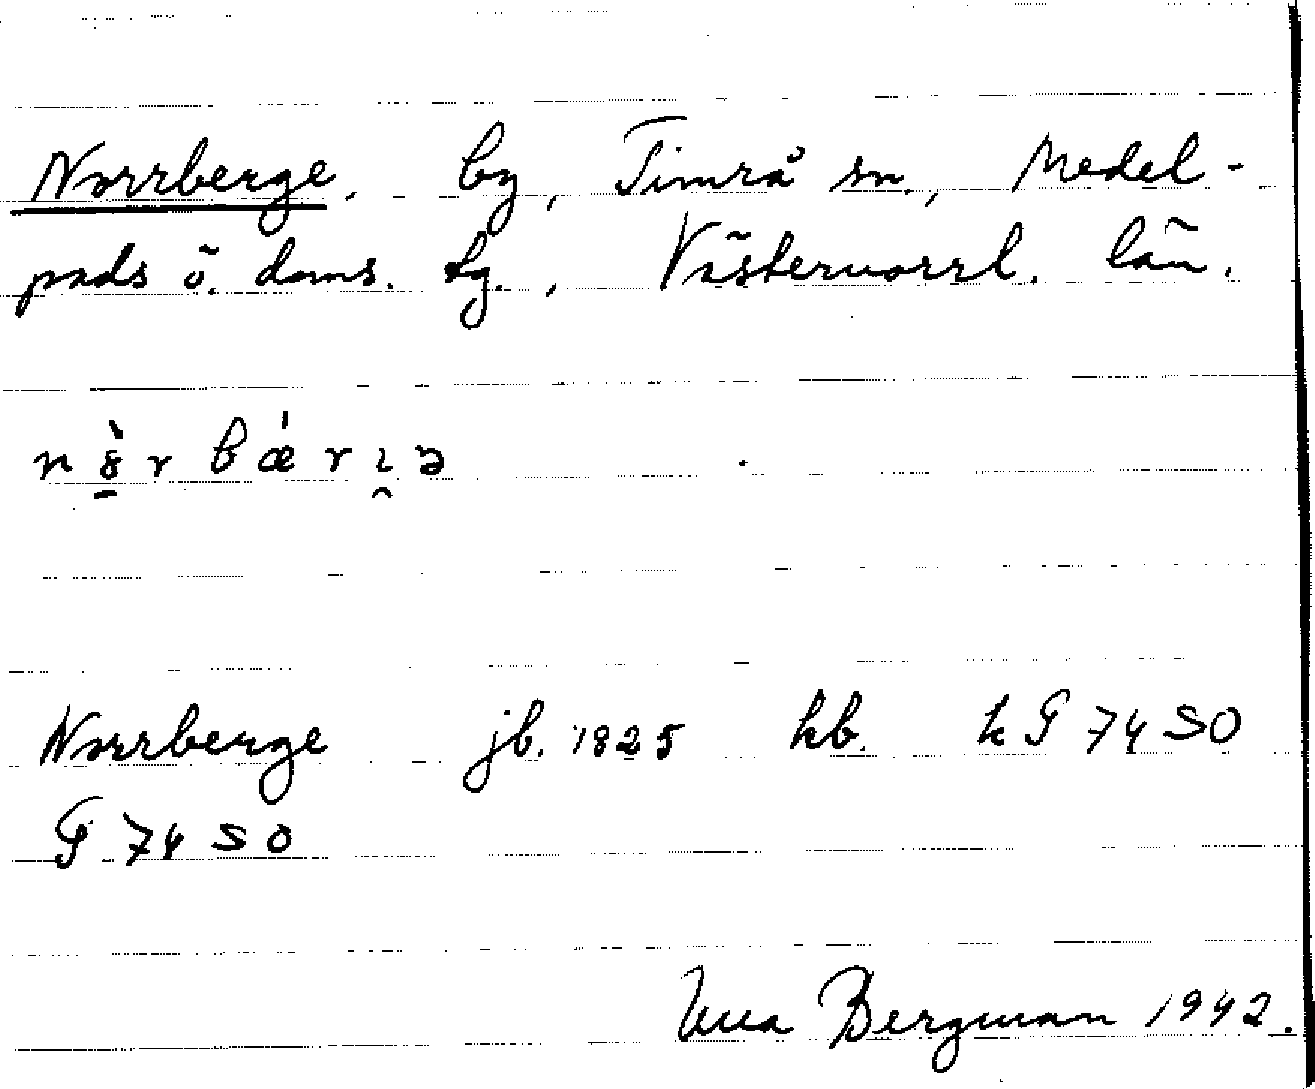 Norrberge. by, Timrå sn., Medel-
pads ö. doms. tg., Västernorrl. län.
Norrberge jb. 1825 hb. k G 74 SO
G 74 SO
Bergman 1942.